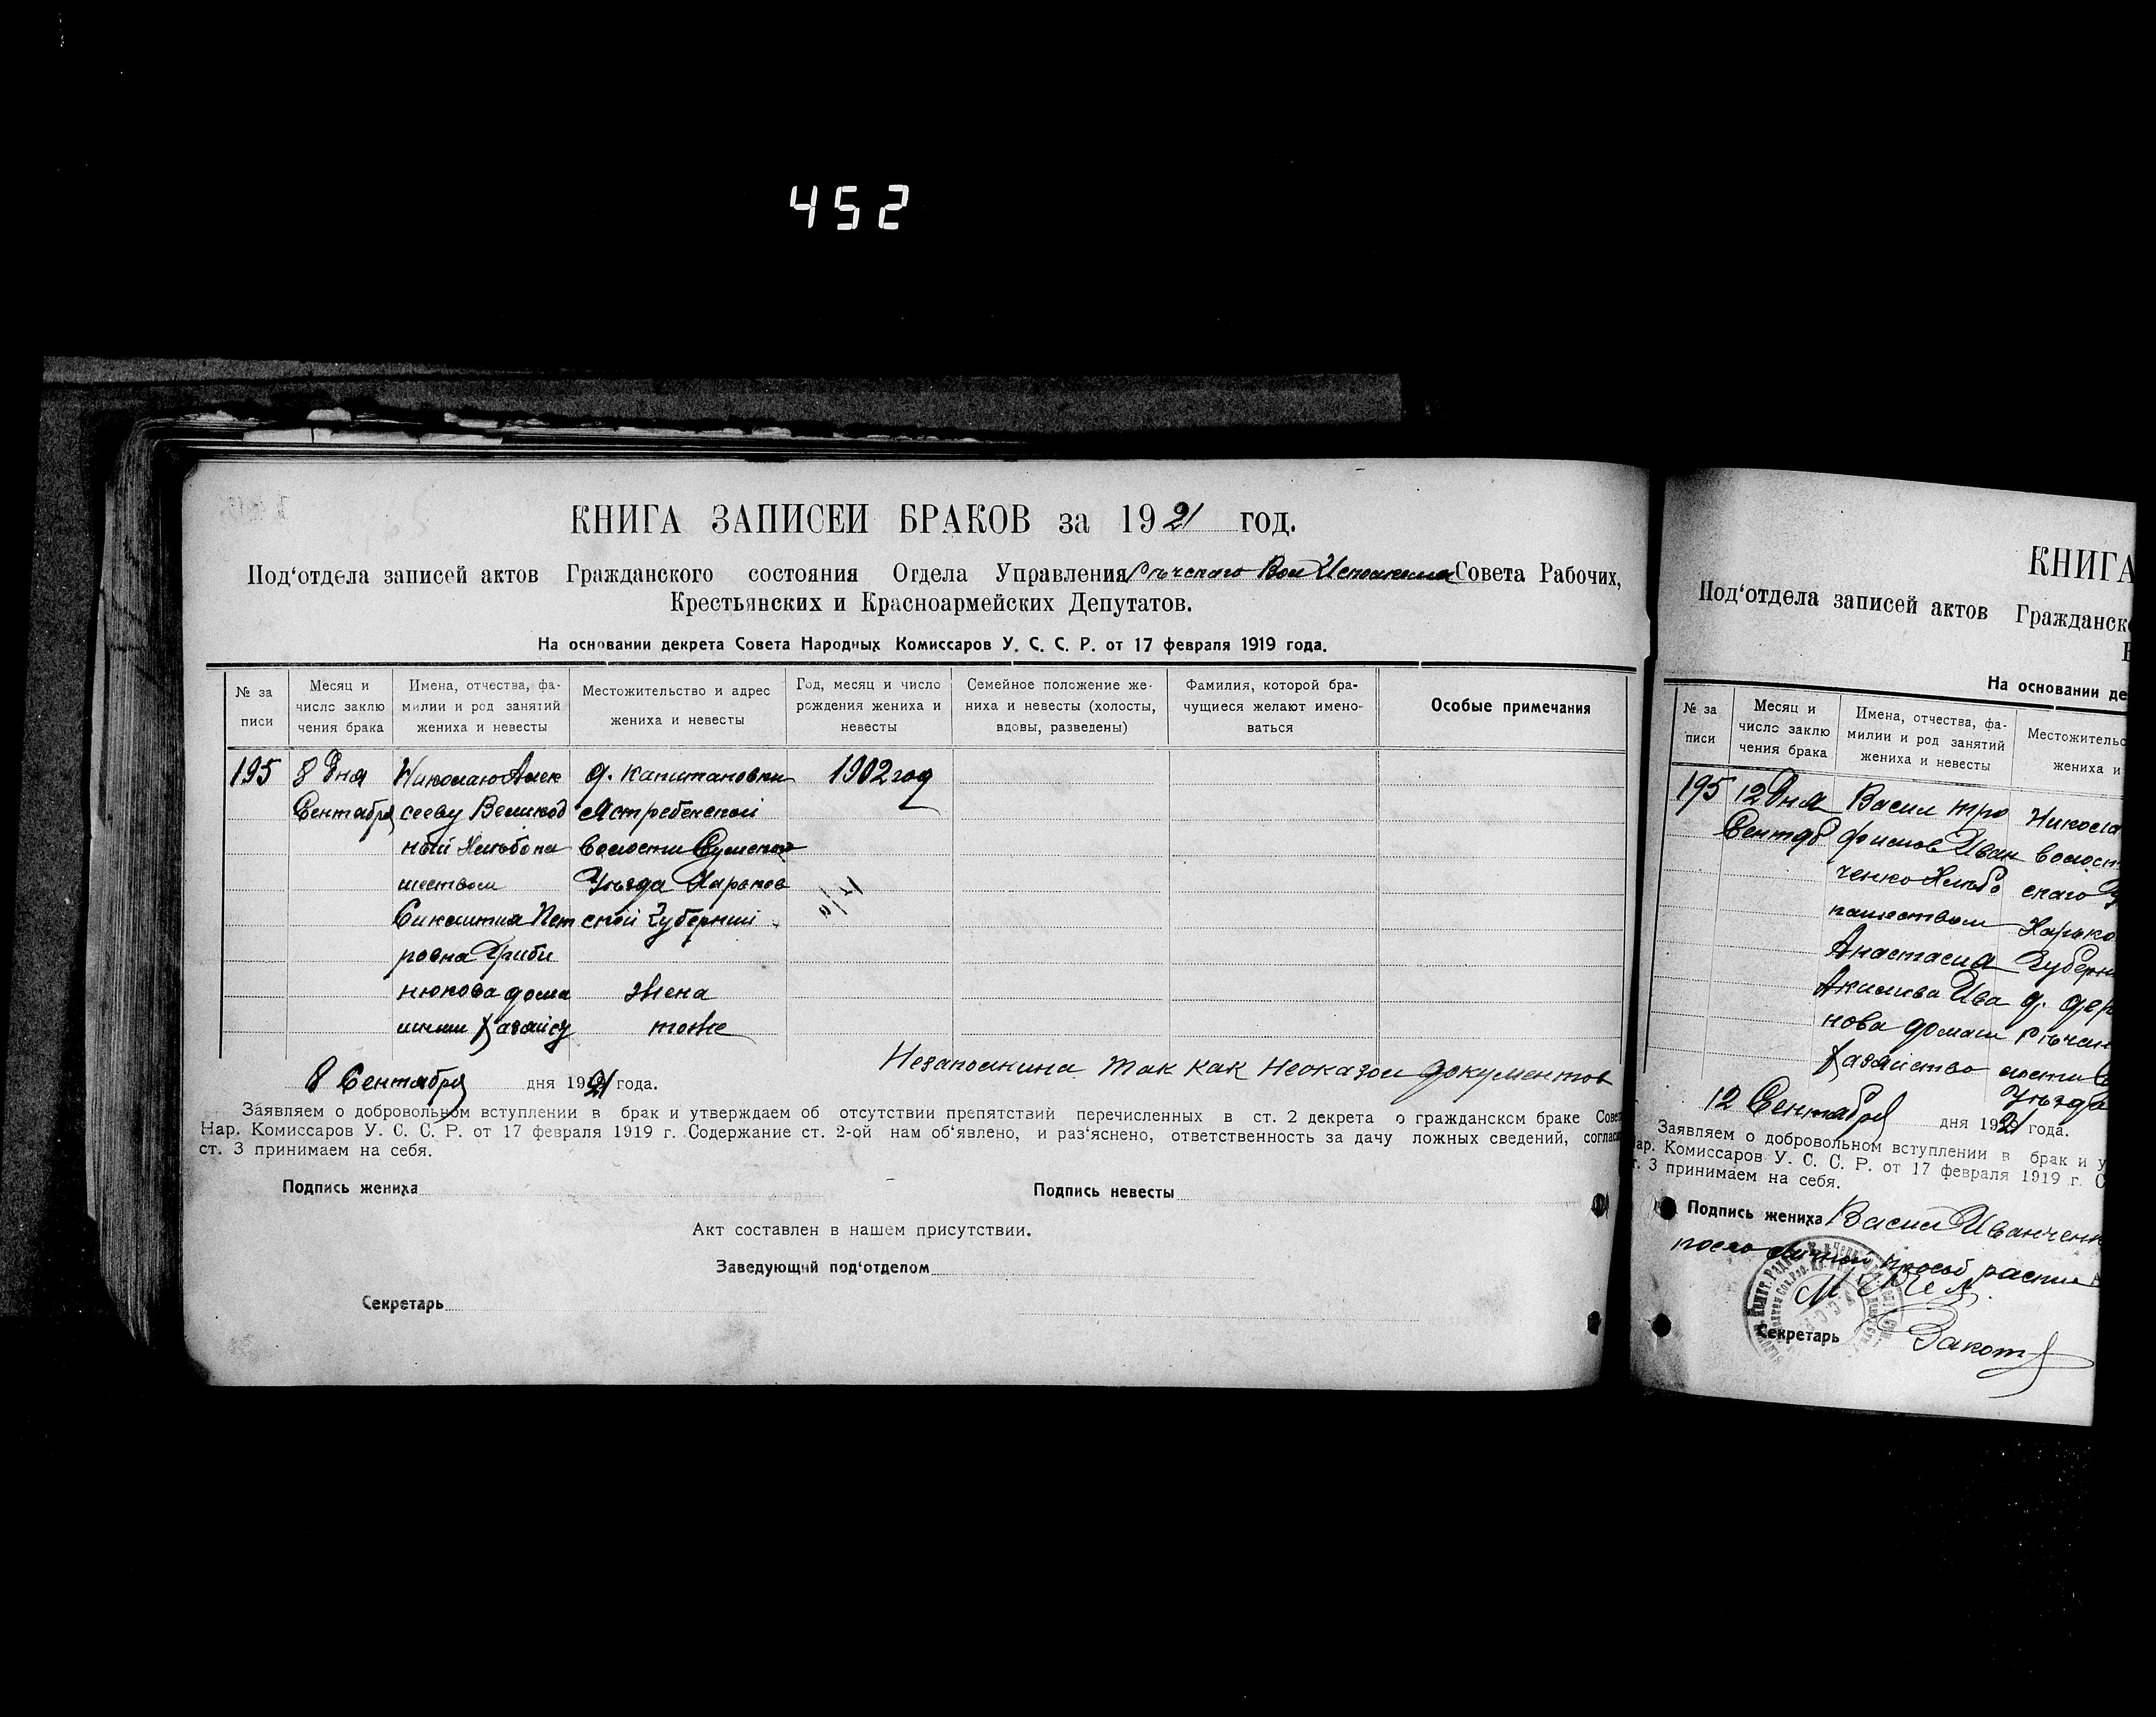 452
КНИГА ЗАПИСЕИ БРАКОВ за 1921 год.
Под‘отдела записей актов Гражданского состояния Отдела Управления Речскаго Вол Исполкома Совета Рабочих,
Крестьянских и Красноармейских Депутатов.
На основании декрета Совета Народных Комиссаров У. С. С. Р. от 17 февраля 1919 года.
№ за
писи
Месяц и
число заклю
чения брака
Имена, отчества, фа-
милии и род занятий
жениха и невесты
Местожительство и адрес
жениха и невесты
Год, месяц и число
рождения жениха и
невесты
Семейное положение же-
ниха и невесты (холосты,
вдовы, разведены)
Фамилия, которой бра-
чущиеся желают имено-
ваться
Особые примечания
195
8 Дня
Сентября
Николаю Алек
сееву Великод
ный Хлѣбопа
шеством
Пет
ровна Гриби
нюкова дома
шним Хазяису
д. Капитановки
Ястребенской
Волости Сумскаго
Уѣзда Харьков
ской Губернии
жена
тоже
1902 год
8 Сентября дня 1921 года.
Незаполнина так как неоказол документов
Заявляем о добровольном вступлении в брак и утверждаем об отсутствии препятствий перечисленных в ст. 2 декрета о гражданском браке Совета
Нар. Комиссаров У. С. С. Р. от 17 февраля 1919 г. Содержание ст. 2-ой нам об‘явлено, и раз‘яснено, ответственность за дачу ложных сведений, соглас
ст. 3 принимаем на себя.
Подпись жениха
Подпись невесты
Акт составлен в нашем присутствии.
Заведующий под‘отделом
Секретарь
КНИГА
Под‘отдела записей актов Гражданск
На основании де
№ за
писи
Месяц и
число заклю
чения брака
Имена, отчества, фа-
милии и род занятий
жениха и невесты
Местожительс
жениха и
195
12 Дня
Сентяб
Васил Тро
фимов Иван
ченко Хлѣбо
пашеством
Анастасия
Акимива Ива
нова домаш
Хазяиство
Никола
волост
скаго У
Харько
Губерн
д. дер
Рѣчан
лости С
Уѣзда
12 Сентября дня 1921 года.
Заявляем о добровольном вступлении в брак и у
Нар. Комиссаров У. С. С. Р. от 17 февраля 1919 г. С
ст. 3 принимаем на себя.
Подпись жениха Васил Иванченк
Секретарь